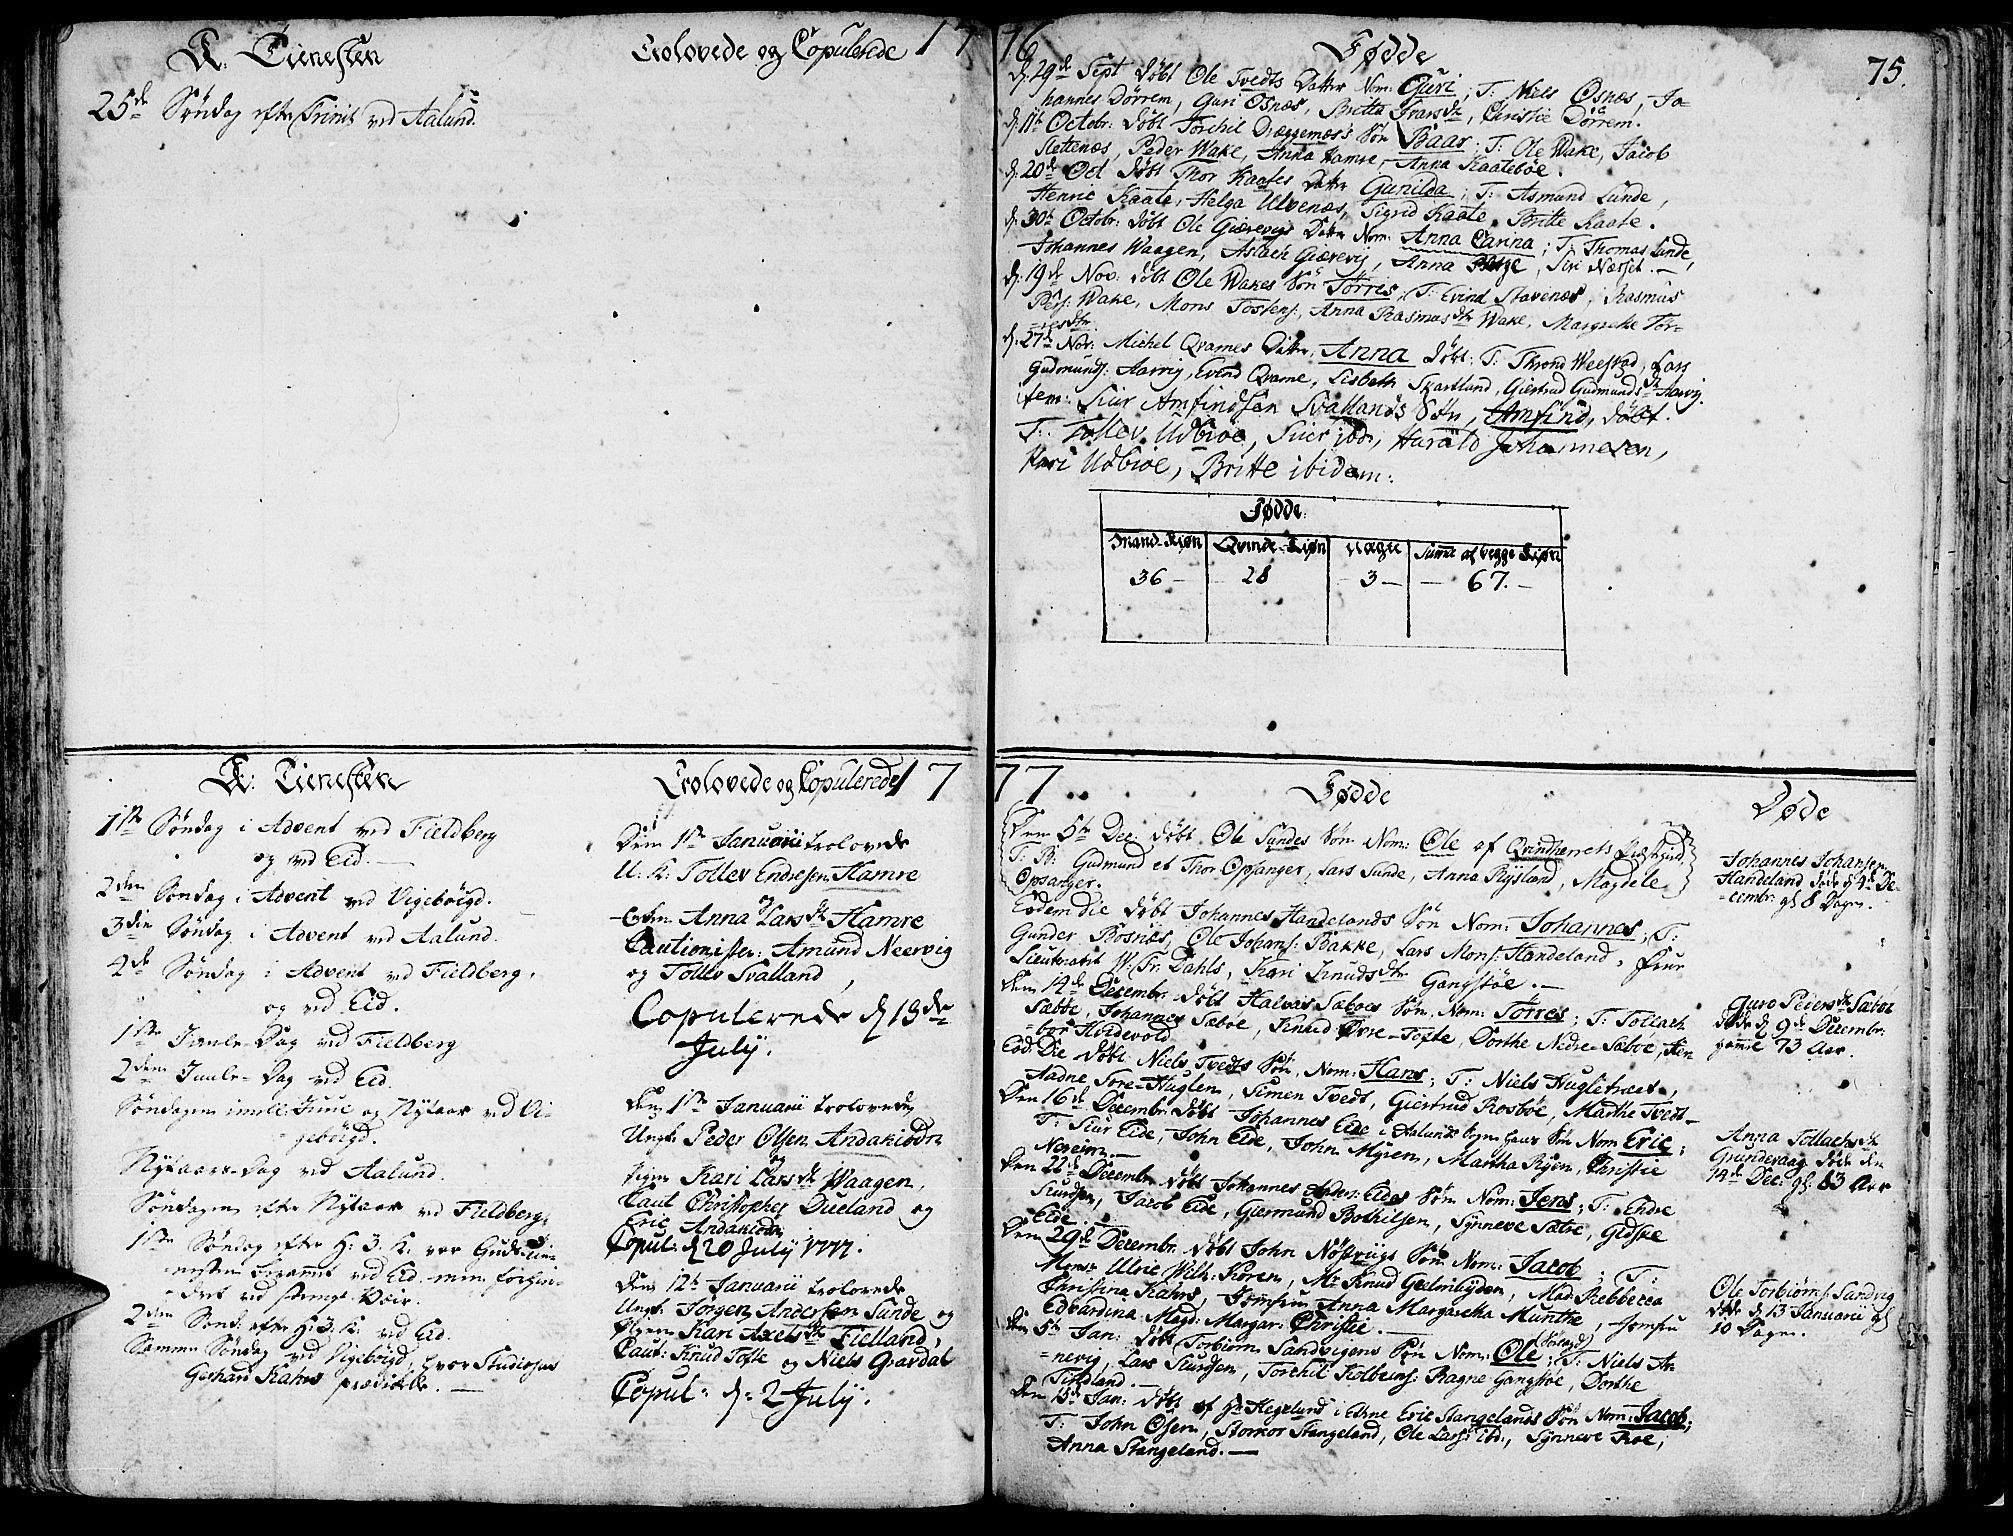 K: Tienesten
Trolovede og Copulerede 17
25de Søndag efter Trinit ved Aalund.
76
Fødde
75.
d. 29de Sept døbt Ole Tvedts Datter Nom: Guri; T: Niels Osnæs, Jo-
hannes Dørrem, Guri Osnæs, Britta Ivarsdtr, Christie Dørrem.
d. 11te Octobr: døbt Torchil Dræggenæs's Søn Baar; T: Ole Wake, Jacob
Slettenæs, Peder Wake, Anna Hamre, Anna Kaatebøe.
d. 20de Oct døbt Thor Kaates Datter Gunilda; T: Asmund Lunde,
Henric Kaate, Helga Ulvenæs, Sigrid Kaate, Britte Kaate.
d. 30te Octobr: døbt Ole Giærevigs Datter Nom: Anna Carina; T: Thomas Lunde,
Johannes Waagen, Aslach Giærevig, Anna, Siri Næsset. —
d: 19de Nov: døbt Ole Wakes Søn Torres, T: Evind Stavenæs, Rasmus
Pers: Wake, Mons Tostens: Anna Rasmusdtr Wake, Margrethe Tor-
resdtr.
d: 27de Nov: Michel Qvames Datter, Anna døbt: T: Thrond Weestad, Lars
Gudmunds: Aarvig, Evind Qvame, Lisbeth Skartland, Giertrud Gudmundsdtr Aarvig.
item: Siur Amfindsen Svallands Søn, Amfind, døbt.
T: Tollev Udbiøe, Siur ibd, Harald Johannesen,
Kari Udbiøe, Britte ibidem:
Fødde:
Mand-Kiøn Qvinde-Kiøn Uægte Summa af begge Kiøn
36 — 28 — 3 — 67. —
K: Tienesten
Trolovede og Copulerede 17
1ste Søndag i Advent ved Fieldberg
og ved Eid. —
2den Søndag i Advent ved Vigebøigd.
3die Søndag i Advent ved Aalund.
4de Søndag i Advent ved Fieldberg,
og ved Eid.
1ste Juule-Dag ved Fieldberg
2den Juule-Dag ved Eid.
Søndagen imell: Juul og Nytaar ved Vi-
gebøigd.
Nytaars-Dag ved Aalund.
Søndagen efter Nytaar ved Fieldberg,
1ste Søndag efter H: 3. K. var Gudstie-
nesten berammet ved Eid, men forhin-
dret ved slemt Veir.
2den Sønd. efter H: 3. K. ved Eid.
Samme Søndag ved Vigebøigd, hvor Studiosus
Gerhard Kahrs prædikede. —
Den 1ste Januarii trolovede
U. K. Tollev Endresen Hamre
og
Anna Larsdtr Hamre
Cautionister: Amund Neervig
og Tollev Svalland,
Copulerede d 13de
July.
Den 1ste Januarii trolovede
Ungk: Peder Olsen Andakiodn
og
Pigen Kari Larsdtr Waagen,
Caut Christopher Dueland og
Eric Andakiodn
Copul: d 20 July 1777.
Den 12te Januarii trolovede
Ungk: Jørgen Andersen Sunde og
Pigen Kari Axelsdtr Fielland,
Caut: Knud Tofte og Niels Gierdal
Copul: d: 2 July.
77
Fødde
Døde
Den 5te Dec: døbt Ole Sundes Søn Nom: Ole af Qvindherrets Præstegield.
T. B: Gudmund et Thor Opsanger, Lars Sunde, Anna Rysland, Magdele
Opsanger.
Eodem die døbt Johannes Handelands Søn Nom: Johannes; T:
Gunder Bosnæs, Ole Johans: Bakke, Lars Mons: Handeland, Frue
Lieutenant W: Fr: Dahls, Kari Knudsdtr Gangstøe. —
Den 14de Decembr døbt Halvor Sæbøes Søn, Nom: Torres; T: Tollach
Sæbøe, Johannes Sæbøe, Knud Øvre-Tofte, Dorthe Nedre-Sæbøe,
Hvidevold.
Eod: Die døbt Niels Tvedts Søn, Nom: Hans; T: Niels Hugletræet,
Aadne Sore-Huglen, Simen Tvedt, Giertrud Rosbøe, Marthe Tvedt.
Den 16de Decembr døbt Johannes Eide i Aalunds Sogn hans Søn Nom Eric;
T: Siur Eide, John Eide, John Myren, Martha Ryen, Christie
Nereim. —
Den 22de Decembr døbt Johannes Ander: Eides Søn Nom: Jens; T: Endre
Siursen, Jacob Eide, Giermund Bothilsen, Synneve Sætre, Gidske
Eide. —
Den 29de Decembr døbt John Nøstvigs Søn Nom: Jacob; T:
Mons: Ulric Wilh: Koren, Mr Knud Gielmuyden, Mad: Rebbecca
Christina Kahrs, Jomfru Anna Margaretha Munthe, Jomfru
Edvardina Magd: Margar: Christie. —
Den 5te Jan: døbt Torbiørn Sandvigens Søn Nom: Ole; T: Niels Ar-
nevig, Lars Siursen, Torchil Kolbeins: Ragne Gangstøe, Dorthe
Findland.
Den 15de Jan: døbt af Hr Hegelund i Etne Eric Stangelands Søn Nom: Jacob;
T: John Olsen, Storkor Stangeland, Ole Lars: ibd:, Synneve Roe,
Anna Stangeland. —
Johannes Johansen
Handeland døde d 4de De-
cembr: gl 8 Dage.
Guro Pedersdtr Sæbøe
døde d 9de Decembr:
gammel 73 Aar.
Anna Tollachsdtr
Grundevaag døde den
14de Dec: gl 83 Aar
Ole Torbiørns: Sandvig
døde d 13 Januarii gl
10 Dage.